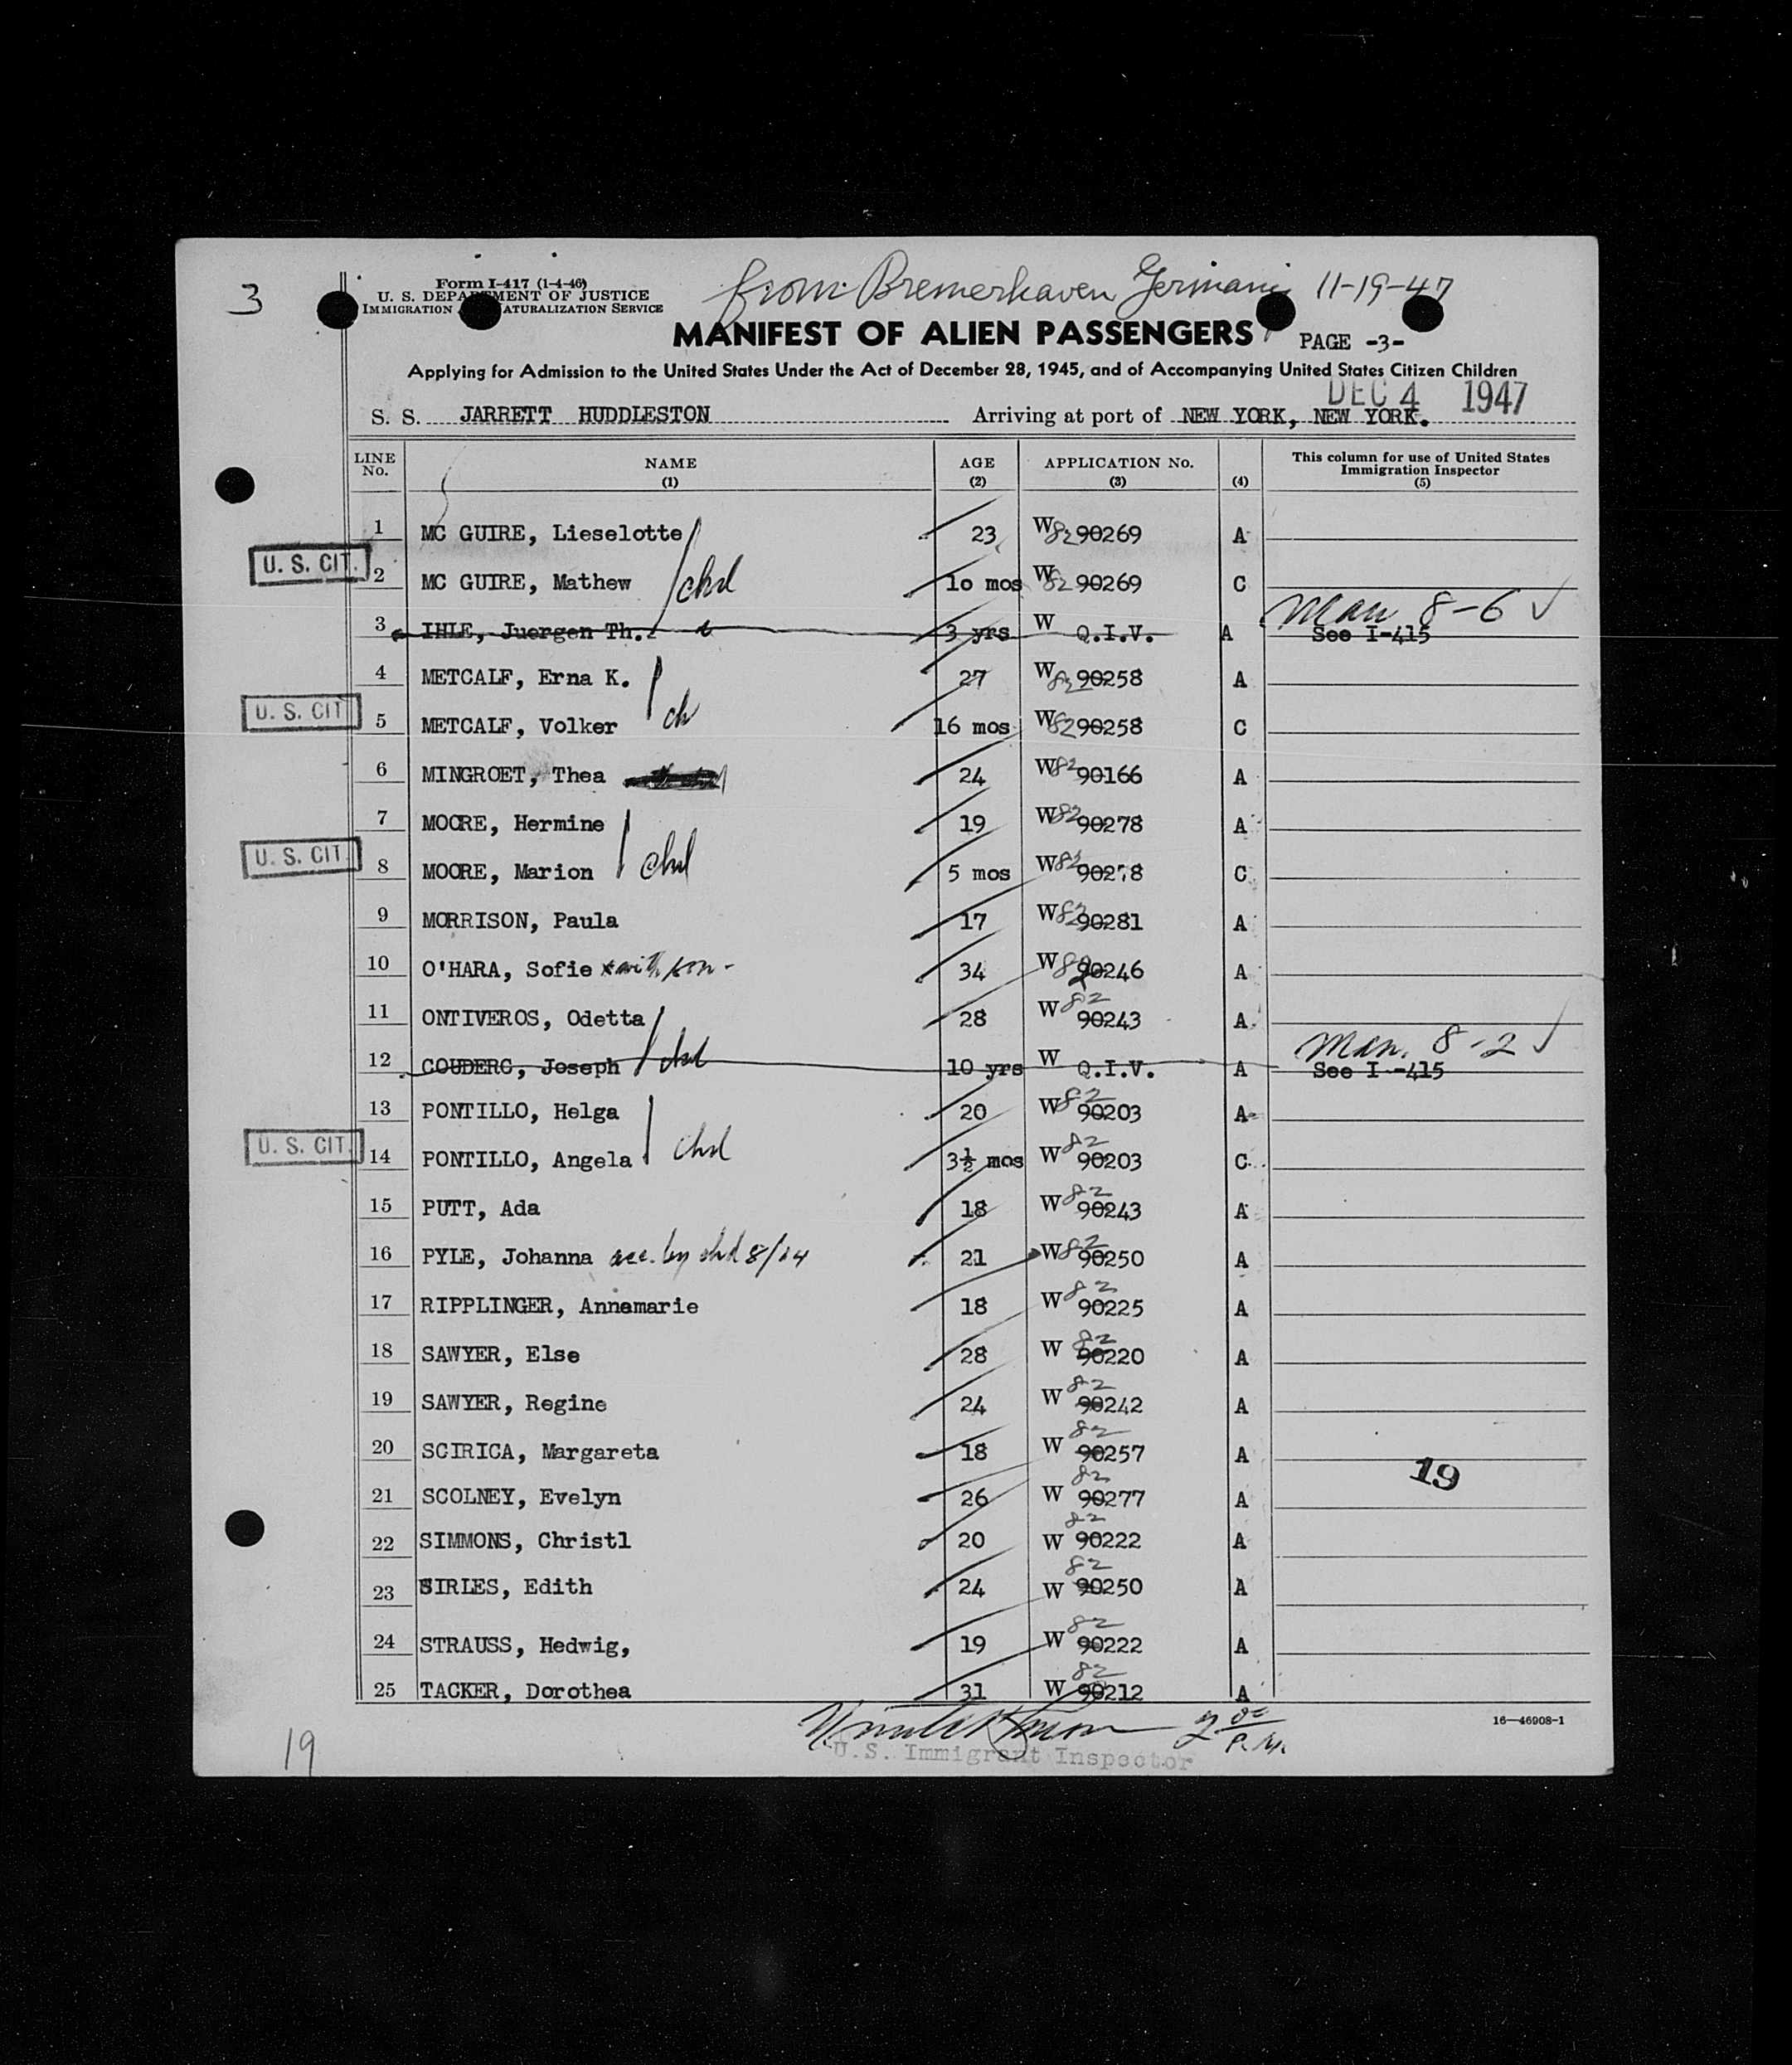 3
Form I-417 (1-4-46)
U. S. DEPARTMENT OF JUSTICE
IMMIGRATION NATURALIZATION SERVICE
from Bremerhaven Germany 11-19-47
MANIFEST OF ALIEN PASSENGERS
PAGE -3-
Applying for Admission to the United States Under the Act of December 28, 1945, and of Accompanying United States Citizen Children
DEC 4 1947
S. S. JARRETT HUDDLESTON Arriving at port of NEW YORK, NEW YORK.
LINE No. NAME (1) AGE (2) APPLICATION No. (3) (4) This column for use of United States Immigration Inspector (5)
1 MC GUIRE, Lieselotte 23 W82 90269 A
U. S. CIT. 2 MC GUIRE, Mathew chd 10 mos W82 90269 C
Man 8-6 ✓
3 IHLE, Juergen Th. 3 yrs W Q.I.V. A See I-415
4 METCALF, Erna K. 27 W82 90258 A
U. S. CIT 5 METCALF, Volker ch 16 mos W82 90258 C
6 MINGROET, Thea 24 W82 90166 A
7 MOORE, Hermine 19 W82 90278 A
U. S. CIT. 8 MOORE, Marion chd 5 mos W82 90278 C
9 MORRISON, Paula 17 W82 90281 A
10 O'HARA, Sofie with son - 34 W82 90246 A
11 ONTIVEROS, Odetta 28 W82 90243 A
Man. 8-2 ✓
12 COUDERC, Joseph chd 10 yrs W Q.I.V. A See I-415
13 PONTILLO, Helga 20 W82 90203 A
U. S. CIT. 14 PONTILLO, Angela chd 3½ mos W82 90203 C
15 PUTT, Ada 18 W82 90243 A
16 PYLE, Johanna acc. by chd 8/14 21 W82 90250 A
17 RIPPLINGER, Annemarie 18 W82 90225 A
18 SAWYER, Else 28 W82 90220 A
19 SAWYER, Regine 24 W82 90242 A
20 SCIRICA, Margareta 18 W82 90257 A
19
21 SCOLNEY, Evelyn 26 W82 90277 A
22 SIMMONS, Christl 20 W82 90222 A
23 SIRLES, Edith 24 W82 90250 A
24 STRAUSS, Hedwig, 19 W82 90222 A
25 TACKER, Dorothea 31 W82 90212 A
16—46908-1
U.S. Immigrant Inspector
P.M.
19